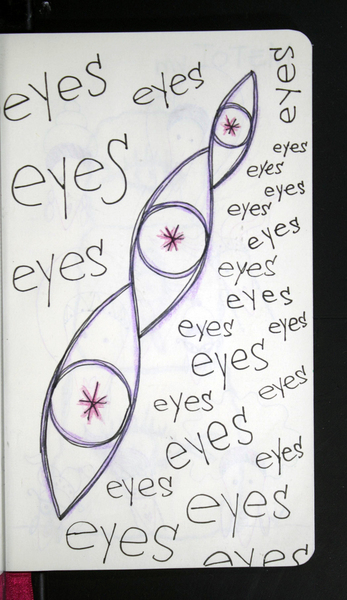 eyes
eyes
eyes
eyes
eyes
eyes
eyes
eyes
eyes
eyes
eyes
eyes
eyes
eyes
eyes
eyes
eyes
eyes
eyes
eyes
eyes
eyes
eyes